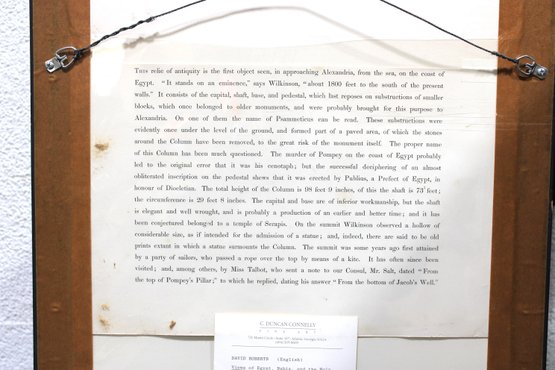 THIS relic of antiquity is the first object seen, in approaching Alexandria, from the sea, on the coast of
Egypt. "It stands on an eminence," says Wilkinson, "about 1800 feet to the south of the present
walls." It consists of the capital, shaft, base, and pedestal, which last reposes on substructions of smaller
blocks, which once belonged to older monuments, and were probably brought for this purpose to
Alexandria. On one of them the name of Psammeticus can be read. These substructions were
evidently once under the level of the ground, and formed part of a paved area, of which the stones
around the Column have been removed, to the great risk of the monument itself. The proper name
of this Column has been much questioned. The murder of Pompey on the coast of Egypt probably
led to the original error that it was his cenotaph; but the successful deciphering of an almost
obliterated inscription on the pedestal shews that it was erected by Publius, a Prefect of Egypt, in
honour of Diocletian. The total height of the Column is 98 feet 9 inches, of this the shaft is 73 feet;
the circumference is 29 feet 8 inches. The capital and base are of inferior workmanship, but the shaft
is elegant and well wrought, and is probably a production of an earlier and better time; and it has
been conjectured belonged to a temple of Serapis. On the summit Wilkinson observed a hollow of
considerable size, as if intended for the admission of a statue; and, indeed, there are said to be old
prints extant in which a statue surmounts the Column. The summit was some years ago first attained
by a party of sailors, who passed a rope over the top by means of a kite. It has often since been
visited; and, among others, by Miss Talbot, who sent a note to our Consul, Mr. Salt, dated "From
the top of Pompey's Pillar;" to which he replied, dating his answer "From the bottom of Jacob's Well."
C. DUNCAN CONNELLY
FINE ART
DAVID ROBERTS (English)
Views of Egypt, Nubia, and the Holy